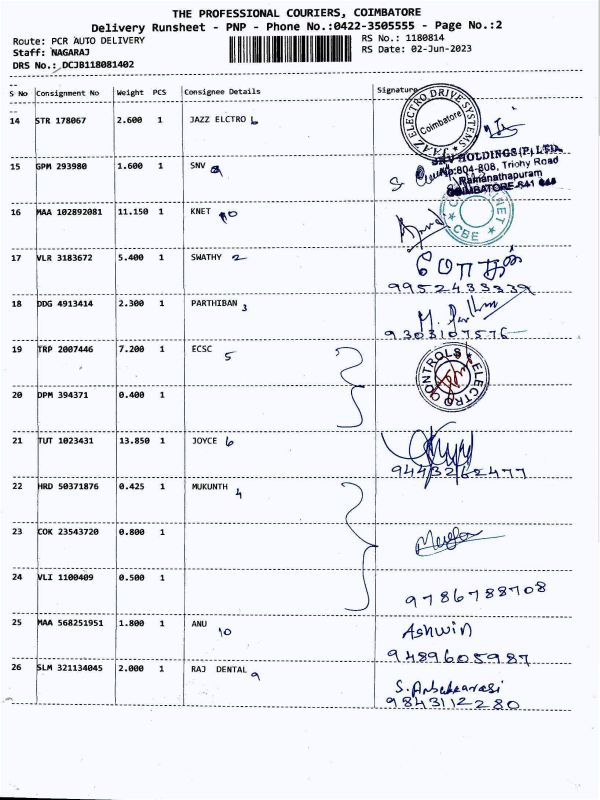 THE PROFESSIONAL COURIERS, COIMBATORE
Delivery Runsheet - PNP - Phone No.:0422-3505555 - Page No.:2
Route: PCR AUTO DELIVERY RS No.: 1180814
Staff: NAGARAJ RS Date: 02-Jun-2023
DRS No.: DCJB118081402
S No Consignment No Weight PCS Consignee Details Signature
14 STR 178067 2.600 1 JAZZ ELCTRO 6
JAAZ ELECTRO DRIVE SYSTEMS
Coimbatore
15 GPM 293980 1.600 1 SNV
SNV HOLDINGS (P) LTD.
No:804-808, Trichy Road
Ramanathapuram
COIMBATORE-641 045
16 MAA 102892081 11.150 1 KNET 10
CBE
17 VLR 3183672 5.400 1 SWATHY 2
9952433339
18 DDG 4913414 2.300 1 PARTHIBAN 3
9303107576
19 TRP 2007446 7.200 1 ECSC 5
ELECTRO CONTROLS
20 DPM 394371 0.400 1
21 TUT 1023431 13.850 1 JOYCE 6
9443262477
22 HRD 50371876 0.425 1 MUKUNTH 4
23 COK 23543720 0.800 1
24 VLI 1100409 0.500 1
9786788708
25 MAA 568251951 1.800 1 ANU 10
Ashwin
9489605987
26 SLM 321134045 2.000 1 RAJ DENTAL 9
9843112280